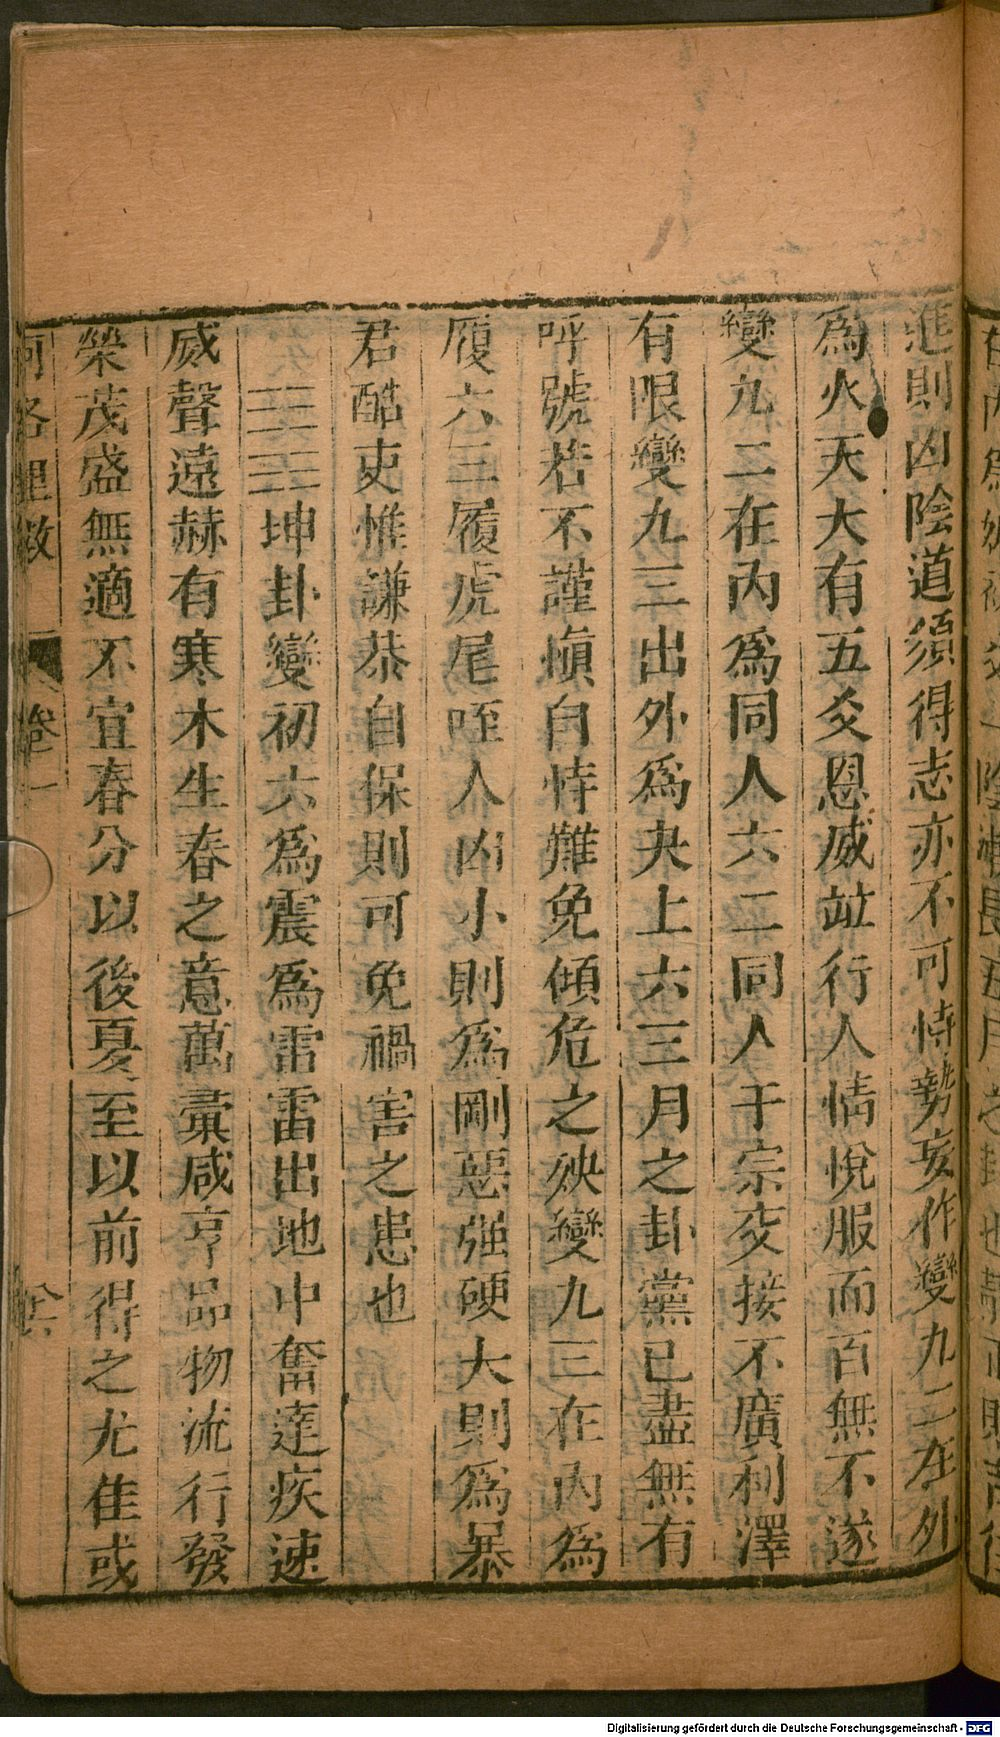 進則凶陰道須得志亦不可恃勢妄作變九二在外
爲火天大有五爻恩威竝行人情悅服而百無不遂
變九二在內爲同人六二同人于宗交接不廣利澤
有限變九三出外爲夬上六三月之卦黨已盡無有
呼號若不謹愼自恃難免傾危之殃變九三在內爲
履六三履虎尾咥人凶小則爲剛惡強硬大則爲暴
君酷吏惟謙恭自保則可免禍害之患也
☷☷坤卦變初六爲震爲雷雷出地中奮達疾速
威聲遠赫有寒木生春之意萬彙咸亨品物流行發
榮茂盛無適不宜春分以後夏至以前得之尤佳或
河洛理數 卷一
Digitalisierung gefördert durch die Deutsche Forschungsgemeinschaft - DFG